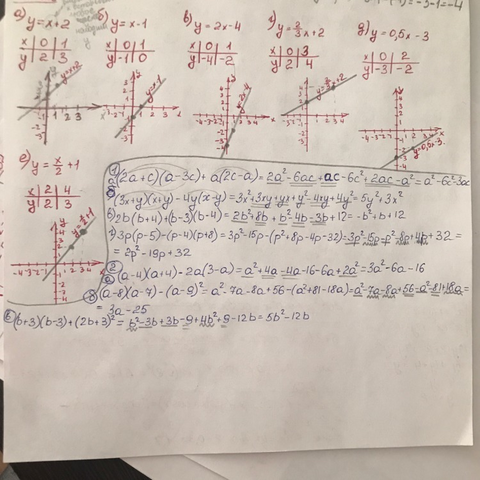 а) y = x+2   б) y = x-1   в) y = 2x-4   г) y = 2/3 x + 2   д) y = 0,5x - 3
x | 0 | 1   x | 0 | 1   x | 0 | 1   x | 0 | 3   x | 0 | 2
y | 2 | 3   y | -1 | 0   y | -4 | -2   y | 2 | 4   y | -3 | -2
е) y = x/2 + 1
x | 2 | 4
y | 2 | 3
① а(2a+c)(a-3c) + a(2c-a) = 2a²-6ac+ac-6c²+2ac-a² = a²-6c²-3ac
(3x+y)(x+y)-4y(x-y) = 3x²+3xy+yx+y²-4xy+4y² = 5y²+3x²
2b(b+4)+(b-3)(b-4) = 2b²+8b+b²-4b-3b+12 = -b²+b+12
3p(p-5)-(p-4)(p+8) = 3p²-15p-(p²+8p-4p-32) = 3p²-15p-p²-8p+4p+32 =
= 2p²-19p+32
② (a-4)(a+4)-2a(3-a) = a²+4a-4a-16-6a+2a² = 3a²-6a-16
(a-8)(a-7)-(a-9)² = a²-7a-8a+56-(a²+81-18a) = a²-7a-8a+56-a²-81+18a =
= 3a-25
(b+3)(b-3)+(2b+3)² = b²-3b+3b-9+4b²+9-12b = 5b²-12b